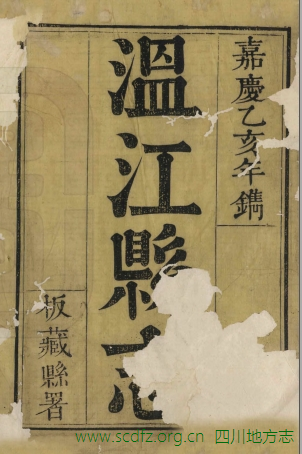 嘉慶乙亥年鐫
溫江縣志
板藏縣署
www.scdfz.org.cn 四川地方志